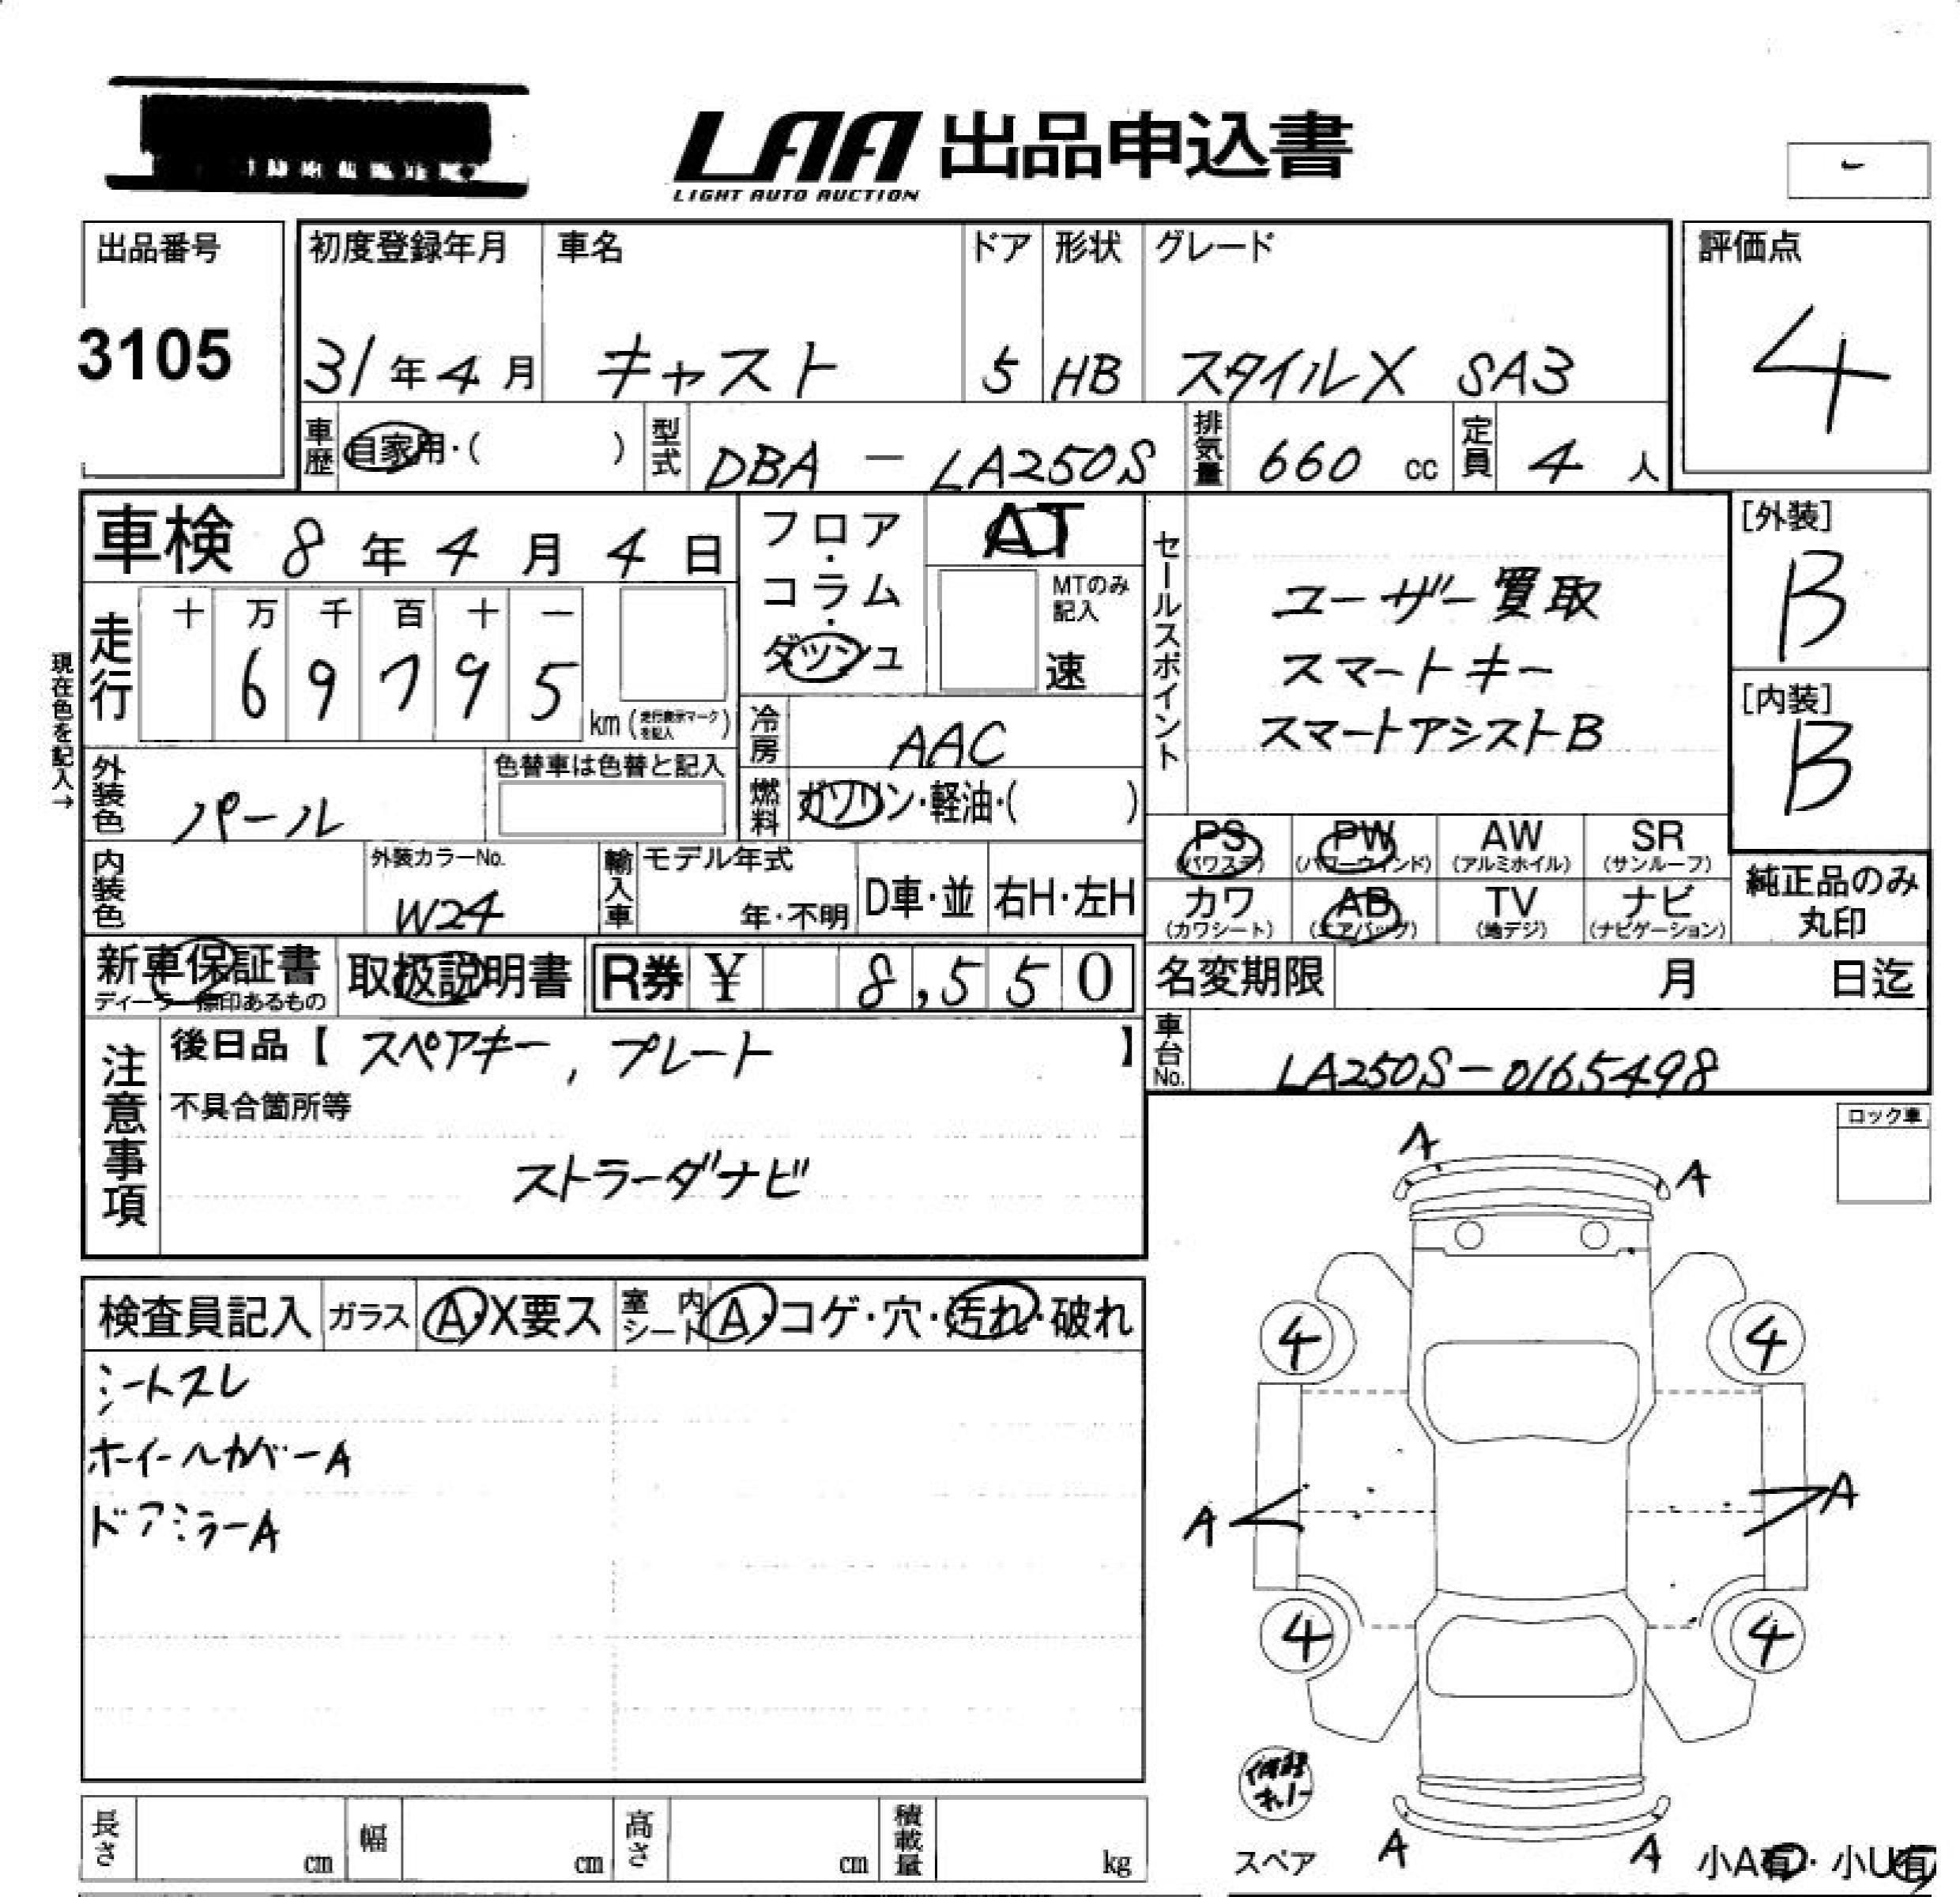 LAA 出品申込書
LIGHT AUTO AUCTION
-
出品番号
3105
初度登録年月 車名 ドア 形状 グレード
31年4月 キャスト 5 HB スタイルX SA3
評価点
4
車歴 自家用・( ) 型式 DBA - LA250S 排気量 660 cc 定員 4 人
車検 8年4月4日
フロア・コラム・ダッシュ
AT
MTのみ記入
速
セールスポイント
ユーザー買取
スマートキー
スマートアシストB
[外装]
B
[内装]
B
現在色を記入→
走行 十 万 千 百 十 一
69795 km (走行表示マークを記入)
冷房 AAC
外装色 パール 色替車は色替と記入
燃料 ガソリン・軽油・( )
PS (パワステ) PW (パワーウィンド) AW (アルミホイル) SR (サンルーフ)
カワ (カワシート) AB (エアバッグ) TV (地デジ) ナビ (ナビゲーション)
純正品のみ丸印
内装色 外装カラーNo. W24 輸入車 モデル年式 年・不明 D車・並 右H・左H
新車保証書 取扱説明書 R券 ¥ 8,550
名変期限 月 日迄
車台No. LA250S-0165498
注意事項
後日品【 スペアキー, プレート 】
不具合箇所等
ストラーダナビ
ロック車
検査員記入 ガラス A・X要ス 室内シート A・コゲ・穴・汚れ・破れ
シートスレ
ホイールカバーA
ドアミラーA
A
A
4
4
A
A
4
4
スペア
A
A
小A有・小U有
長さ cm 幅 cm 高さ cm 積載量 kg